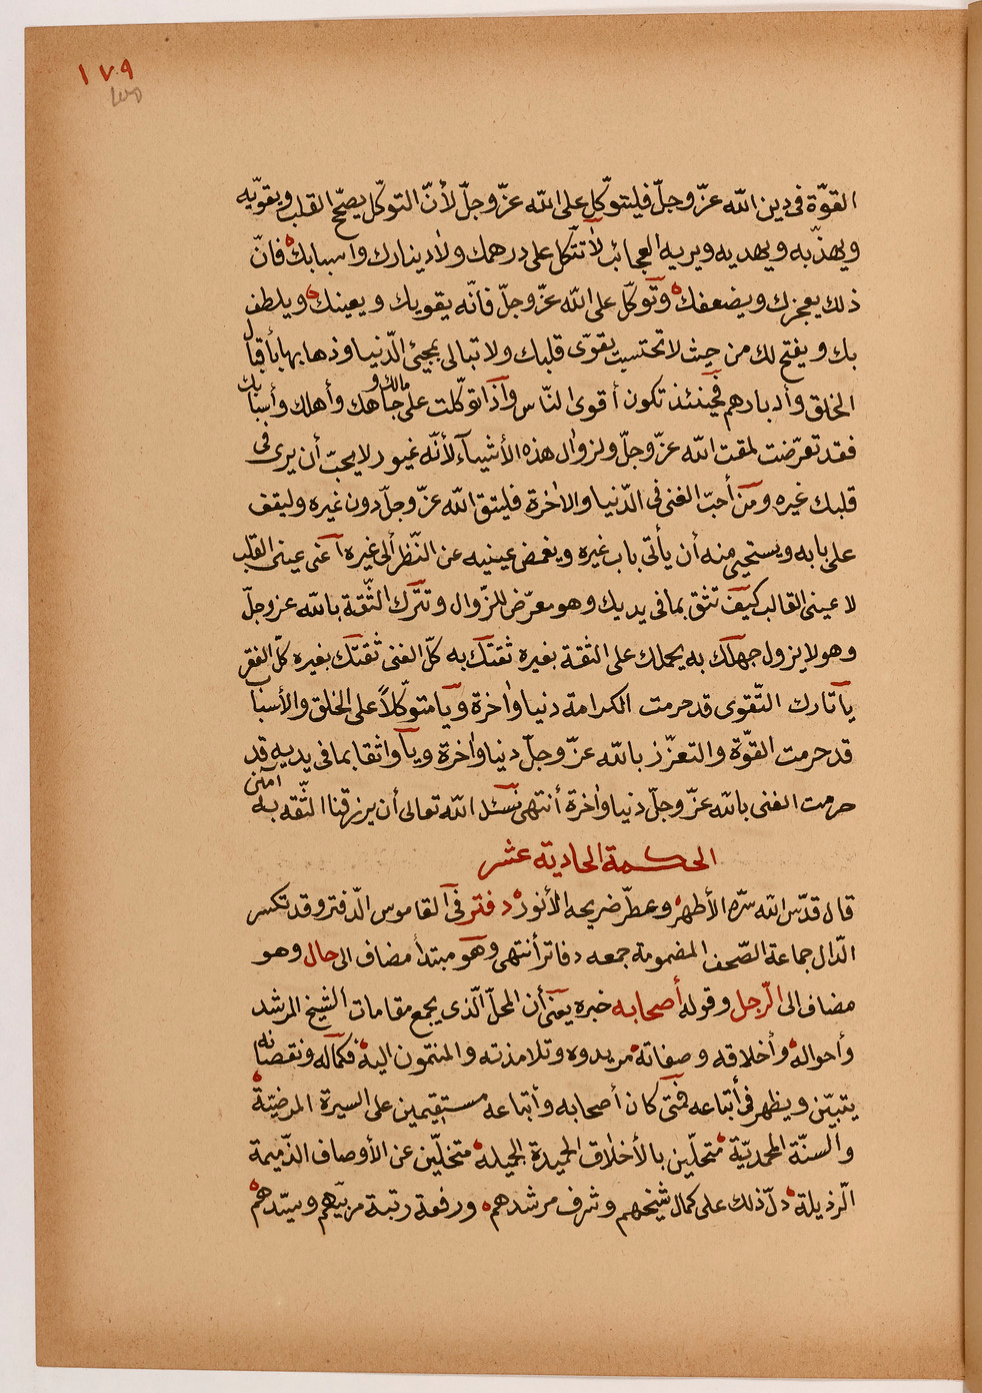 ١٧٩
القوّة فى دين الله عزّ وجلّ فليتوكّل على الله عزّ وجلّ لأنّ التوكّل يصحّح القلب ويقوّيه
ويهذّبه ويهديه ويريه العجائب لا تتّكل على درهمك ولا دينارك واسبابك فانّ
ذلك يعجزك ويضعفك وتوكّل على الله عزّ وجلّ فانّه يقويك ويعينك ويلطف
بك ويفتح لك من حيث لا تحتسب يقوّى قلبك ولا تبالى بمجيئ الدّنيا وذهابها بأقبال
الخلق وأدبارهم فحينئذ تكون أقوى النّاس وأذا توكّلت على مالك و جاهك وأهلك وأسبابك
فقد تعرّضت لمقت الله عزّ وجلّ ولزوال هذه الأشيآء لأنّه غيور لا يحبّ أن يرى فى
قلبك غيره ومن أحبّ الغنى فى الدّنيا والاٰخرة فليتق الله عزّ وجلّ دون غيره وليقف
على بابه ويستحيى منه أن يأتى باب غيره ويغمض عينيه عن النّظر ألى غيره أعنى عينى القلب
لا عينى القالب كيف تثق بما فى يديك وهو معرّض للزّوال وتترك الثّقة بالله عز وجلّ
وهو لا يزول جهلك به يحملك على الثقة بغيره ثقتك به كلّ الغنى ثقتك بغيره كلّ الفقر
يا تارك التّقوى قد حرمت الكرامة دنيا واٰخرة ويا متوكّلاً على الخلق والأسباب
قد حرمت القوّة والتعزّز بالله عزّ وجلّ دنيا واٰخرة ويا واثقا بما فى يديه قد
حرمت الغنى بالله عزّ وجلّ دنيا واٰخرة أنتهى نسئل الله تعالى أن يرزقنا الثّقه به آمين
الحكمة الحادية عشر
قال قدّس الله سرّه الأطهر وعطّر ضريحه الأنور دفتر فى القاموس الدّفتر وقد تكسر
الدّال جماعة الصّحف المضمومة جمعه دفاتر أنتهى وهو مبتدأ مضاف الى حال وهو
مضاف الى الرّجل وقوله أصحابه خبره يعنى أن المحلّ الّذى يجمع مقامات الشيخ المرشد
وأحواله وأخلاقه وصفاته مريدوه وتلامذته والمنتمّون اليه فكماله ونقصانه
يتبيّن ويظهر فى أتباعه فمتى كان أصحابه وأتباعه مستقيمين على السيرة المرضيّة
والسنّة المحمديّة متحلّين بالأخلاق الحميدة الجميلة متخلّين عن الأوصاف الذّميمة
الرّذيلة دلّ ذلك على كمال شيخهم وشرف مرشدهم ورفعة رتبة مربّيهم وسيّدهم